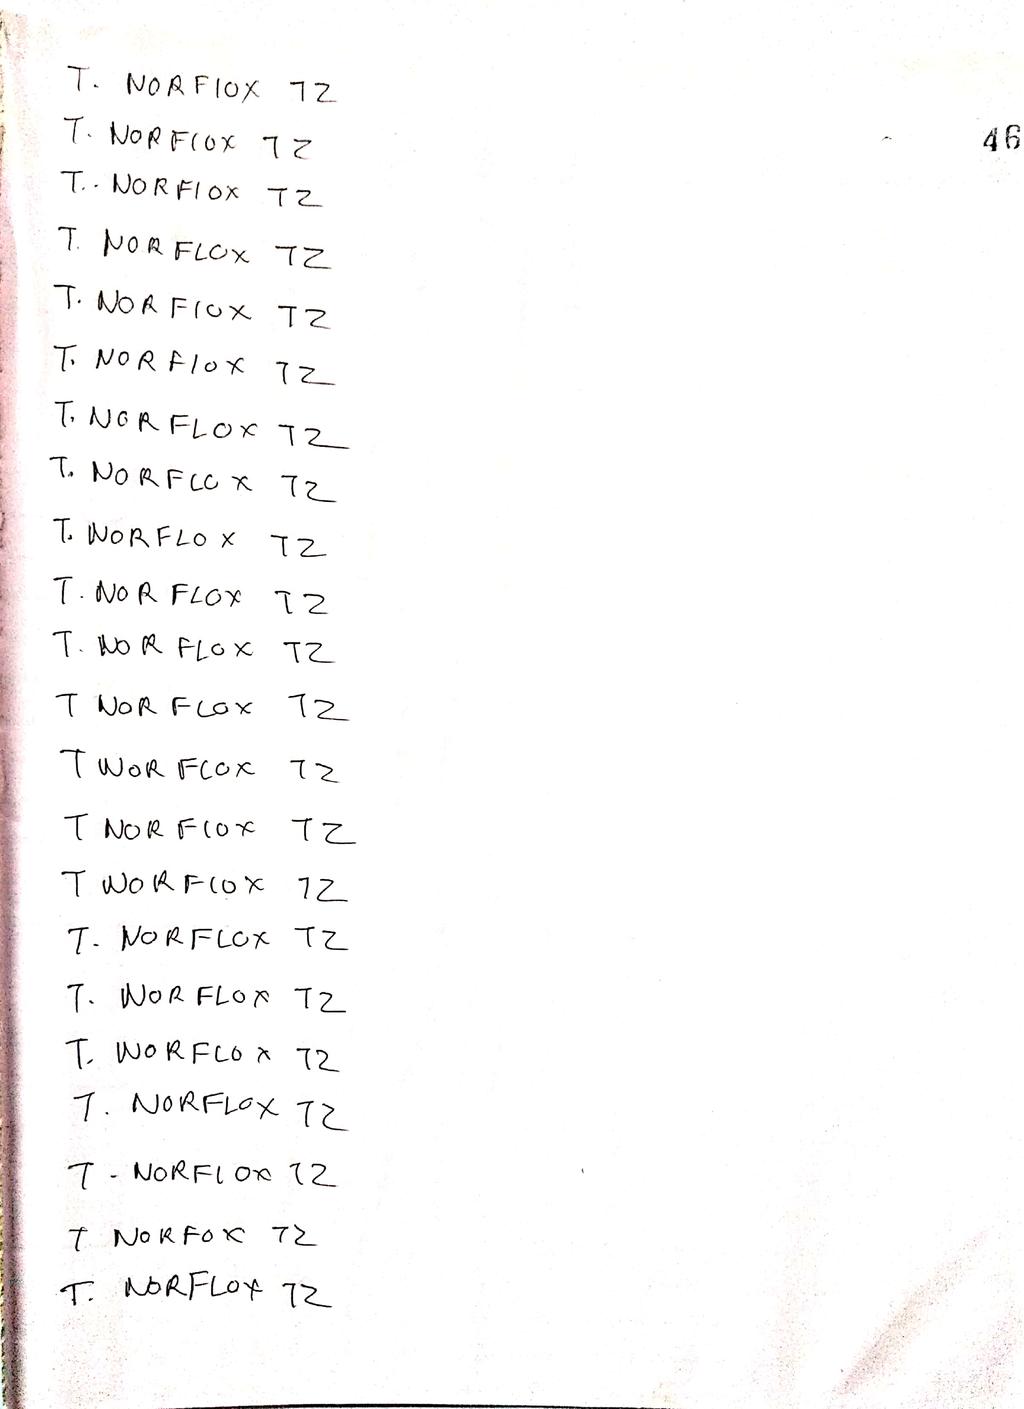 T. NORFLOX TZ
T. NORFLOX TZ
46
T. NORFLOX TZ
T. NORFLOX TZ
T. NORFLOX TZ
T. NORFLOX TZ
T. NORFLOX TZ
T. NORFLOX TZ
T. NORFLOX TZ
T. NORFLOX TZ
T. NORFLOX TZ
T NORFLOX TZ
T NORFLOX TZ
T NORFLOX TZ
T NORFLOX TZ
T. NORFLOX TZ
T. NORFLOX TZ
T. NORFLOX TZ
T. NORFLOX TZ
T - NORFLOX TZ
T NORFOX TZ
T. NORFLOX TZ